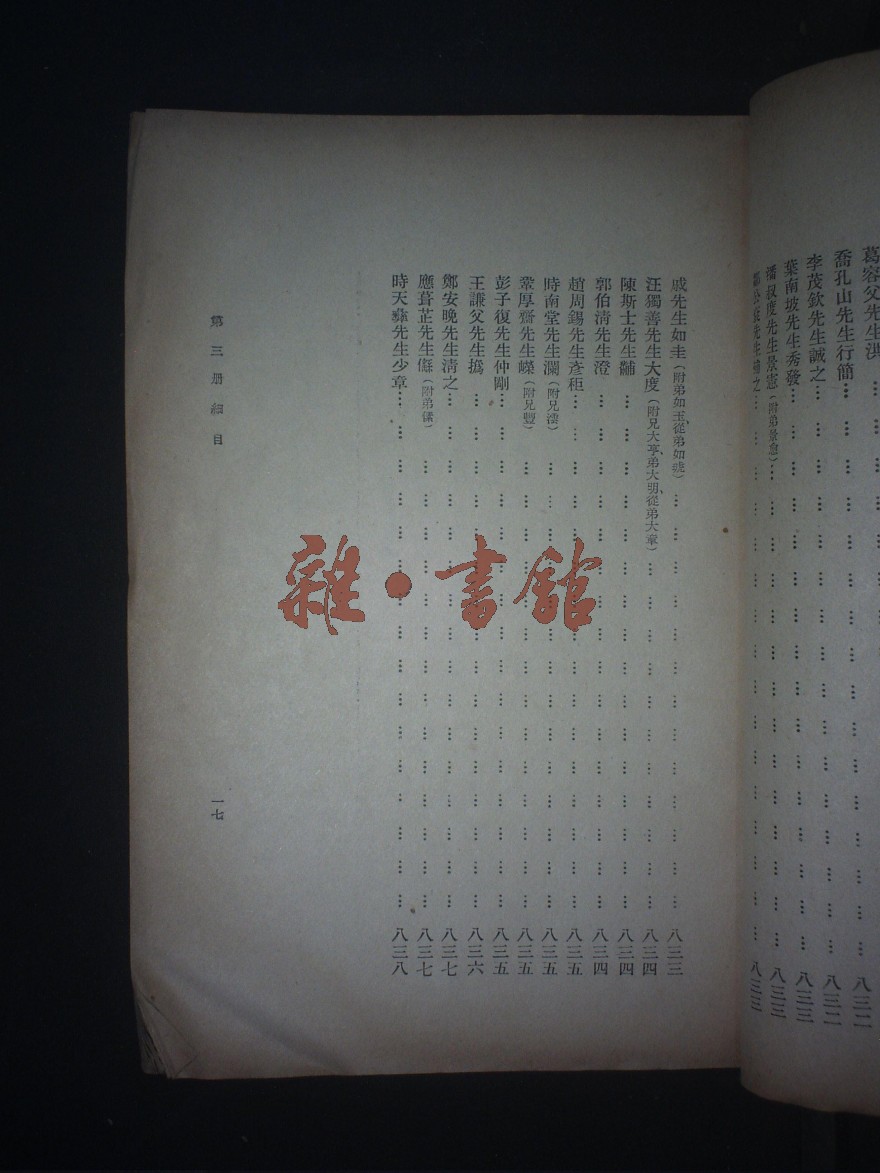 葛容父先生洪…八三二
喬孔山先生行簡…八三二
李茂欽先生誠之…八三二
葉南坡先生秀發…八三三
潘叔度先生景憲(附弟景愈)…八三三
先生補之…八三三
戚先生如圭(附弟如玉、從弟如琥)…八三三
汪獨善先生大度(附兄大亨、弟大明、從弟大章)…八三四
陳斯士先生黼…八三四
郭伯清先生澄…八三四
趙周錫先生彥秬…八三五
時南堂先生瀾(附兄澐)…八三五
鞏厚齋先生嶸(附兄豐)…八三五
彭子復先生仲剛…八三五
王謙父先生撝…八三六
鄭安晚先生淸之…八三七
應葺芷先生㒟(附弟㒟)…八三七
時天彝先生少章…八三八
第三册細目
一七
雜·書館